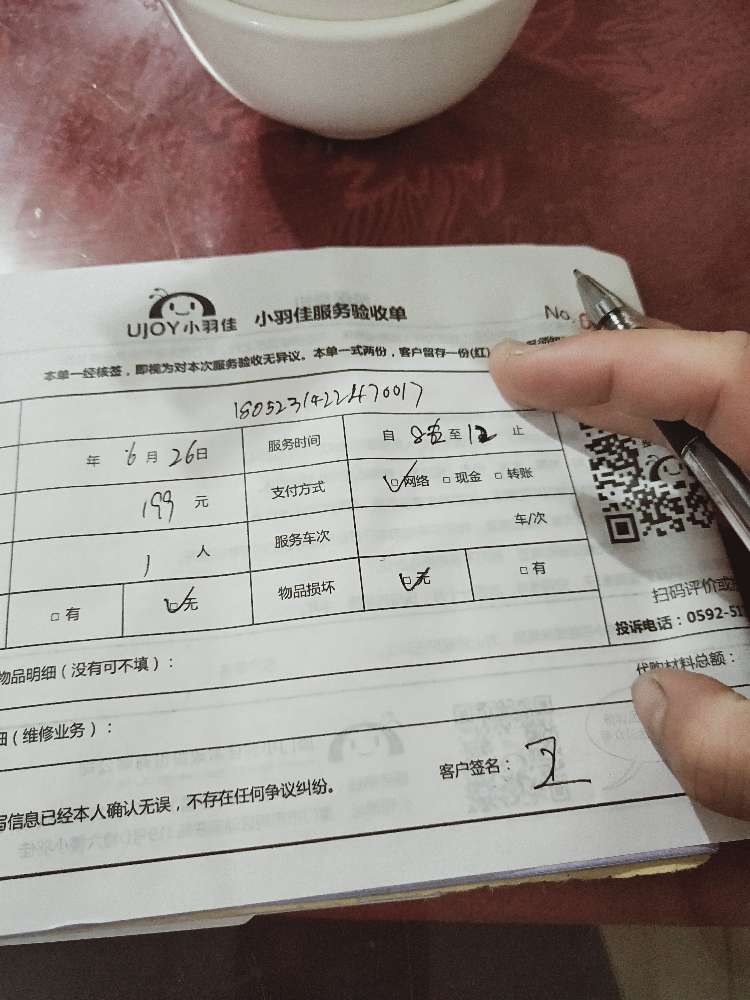 UJOY小羽佳 小羽佳服务验收单 No.
本单一经核签，即视为对本次服务验收无异议。本单一式两份，客户留存一份(红)
1805231422470017
年 6月26日 服务时间 自 8 至 12 止
199 元 支付方式 网络 现金 转账
1 人 服务车次 车/次
有 无 物品损坏 无 有
扫码评价或
投诉电话：0592-51
物品明细（没有可不填）：
代购材料总额：
细（维修业务）：
客户签名：
写信息已经本人确认无误，不存在任何争议纠纷。